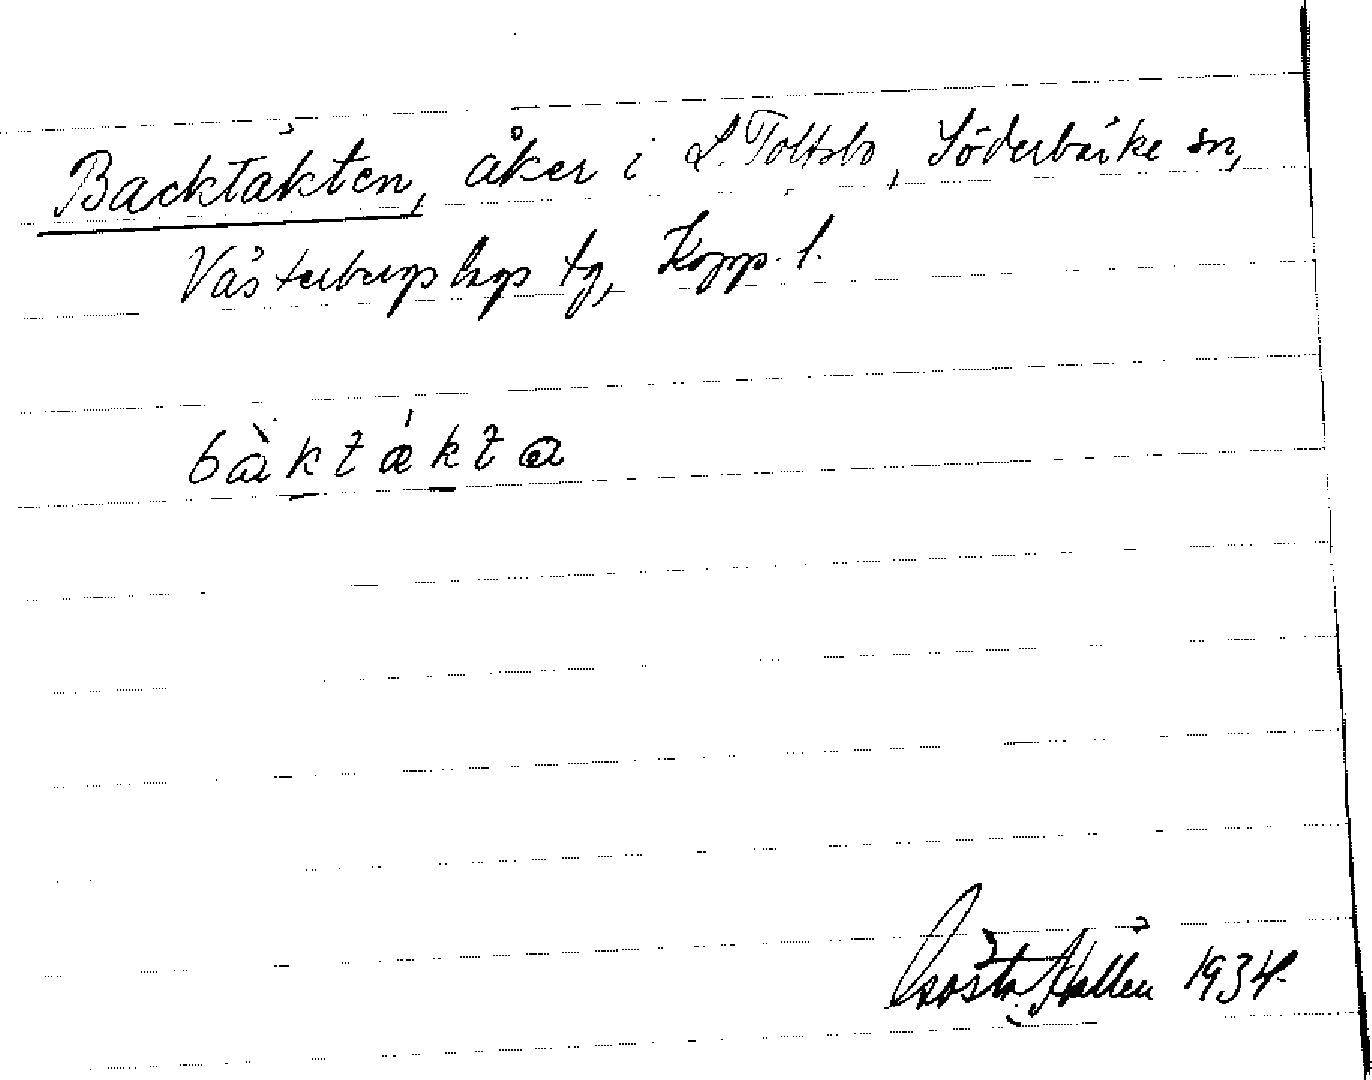 Backtäkten, åker i L. Toltsbo, Söderbärke sn,
Västerbergslags tg, Kopp. l.
bàktǽkta
Gösta Hallén 1934.